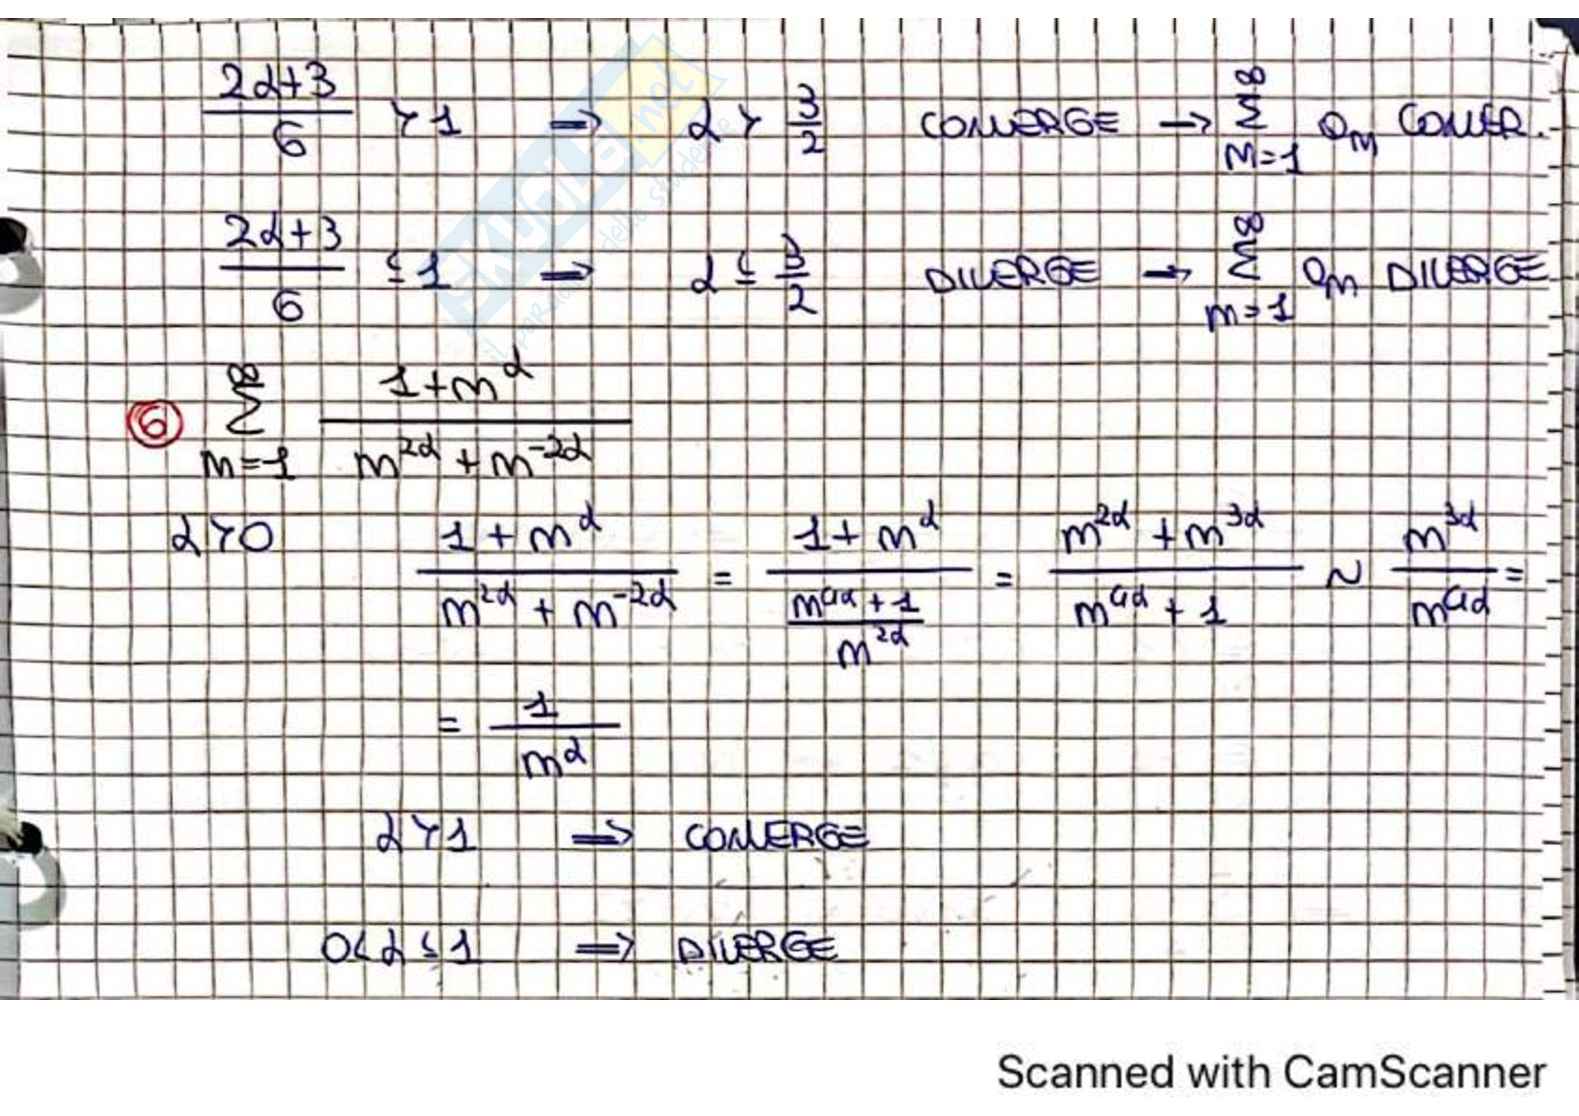 (2α+3)/6 > 1 ⇒ α > 3/2 CONVERGE → ∑_{n=1}^{∞} a_n CONVER.
(2α+3)/6 ≤ 1 ⇒ α ≤ 3/2 DIVERGE → ∑_{n=1}^{∞} a_n DIVERGE
⑥ ∑_{n=1}^{∞} (1+n^α)/(n^{2α}+n^{-2α})
α>0 (1+n^α)/(n^{2α}+n^{-2α}) = (1+n^α)/((n^{4α}+1)/n^{2α}) = (n^{2α}+n^{3α})/(n^{4α}+1) ~ n^{3α}/n^{4α} =
= 1/n^α
α>1 ⇒ CONVERGE
0<α≤1 ⇒ DIVERGE
Scanned with CamScanner